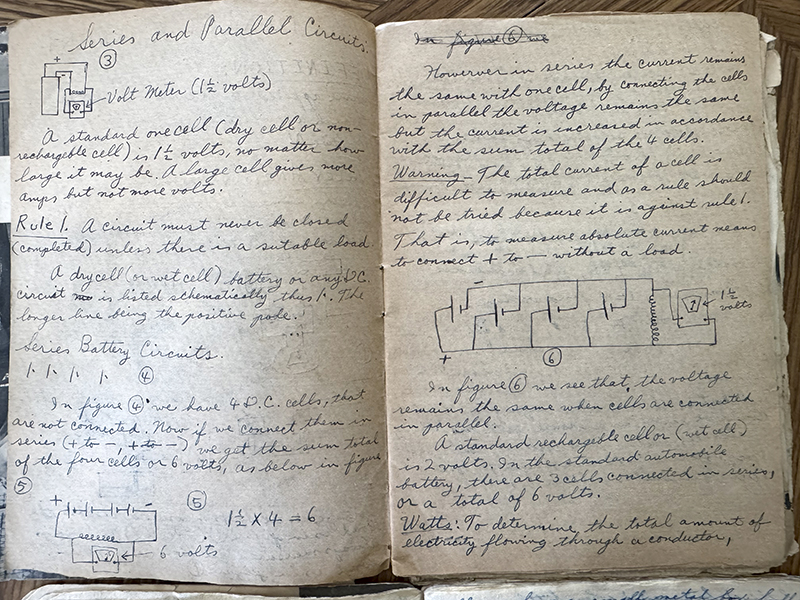 Series and Parallel Circuits.
3
+
Volt Meter (1½ volts)
A standard one cell (dry cell or non-
rechargable cell) is 1½ volts, no matter how
large it may be. A large cell gives more
amps but not more volts.
Rule 1. A circuit must never be closed
(completed) unless there is a sutable load
A dry cell (or wet cell) battery or any D.C.
circuit is listed schematically thus. The
longer line being the positive pode.
Series Battery Circuits.
4
In figure 4 we have 4 D.C. cells, that
are not connected. Now if we connect them in
series (+ to -, + to -) we get the sum total
of the four cells or 6 volts, as below in figure
5
+ -
5
1½ X 4 = 6
6 volts
In figure 6 we
Howerver in series the current remains
the same with one cell, by connecting the cells
in parallel the voltage remains the same
but the current is increased in accordance
with the sum total of the 4 cells.
Warning - The total current of a cell is
difficult to measure and as a rule should
not be tried because it is against rule 1.
That is, to measure absolute current means
to connect + to - without a load.
-
1½
volts
+
6
In figure 6 we see that, the voltage
remains the same when cells are connected
in parallel.
A standard rechargable cell or (wet cell)
is 2 volts. In the standard automobile
battery, there are 3 cells connected in series,
or a total of 6 volts.
Watts: To determine, the total amount of
electricity flowing through a conductor,